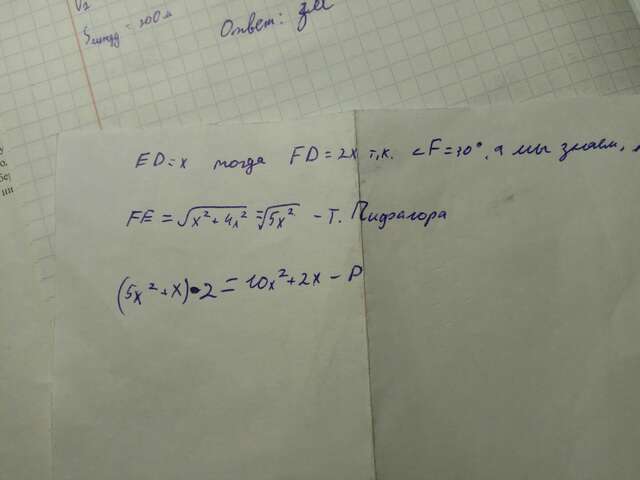 √2
= 300 м
Ответ: 3м
ED=x тогда FD=2x т.к. ∠F=30°, а мы знаем,
FE=√x²+4x² =√5x² - Т. Пифагора
(5x²+x)•2=10x²+2x-P